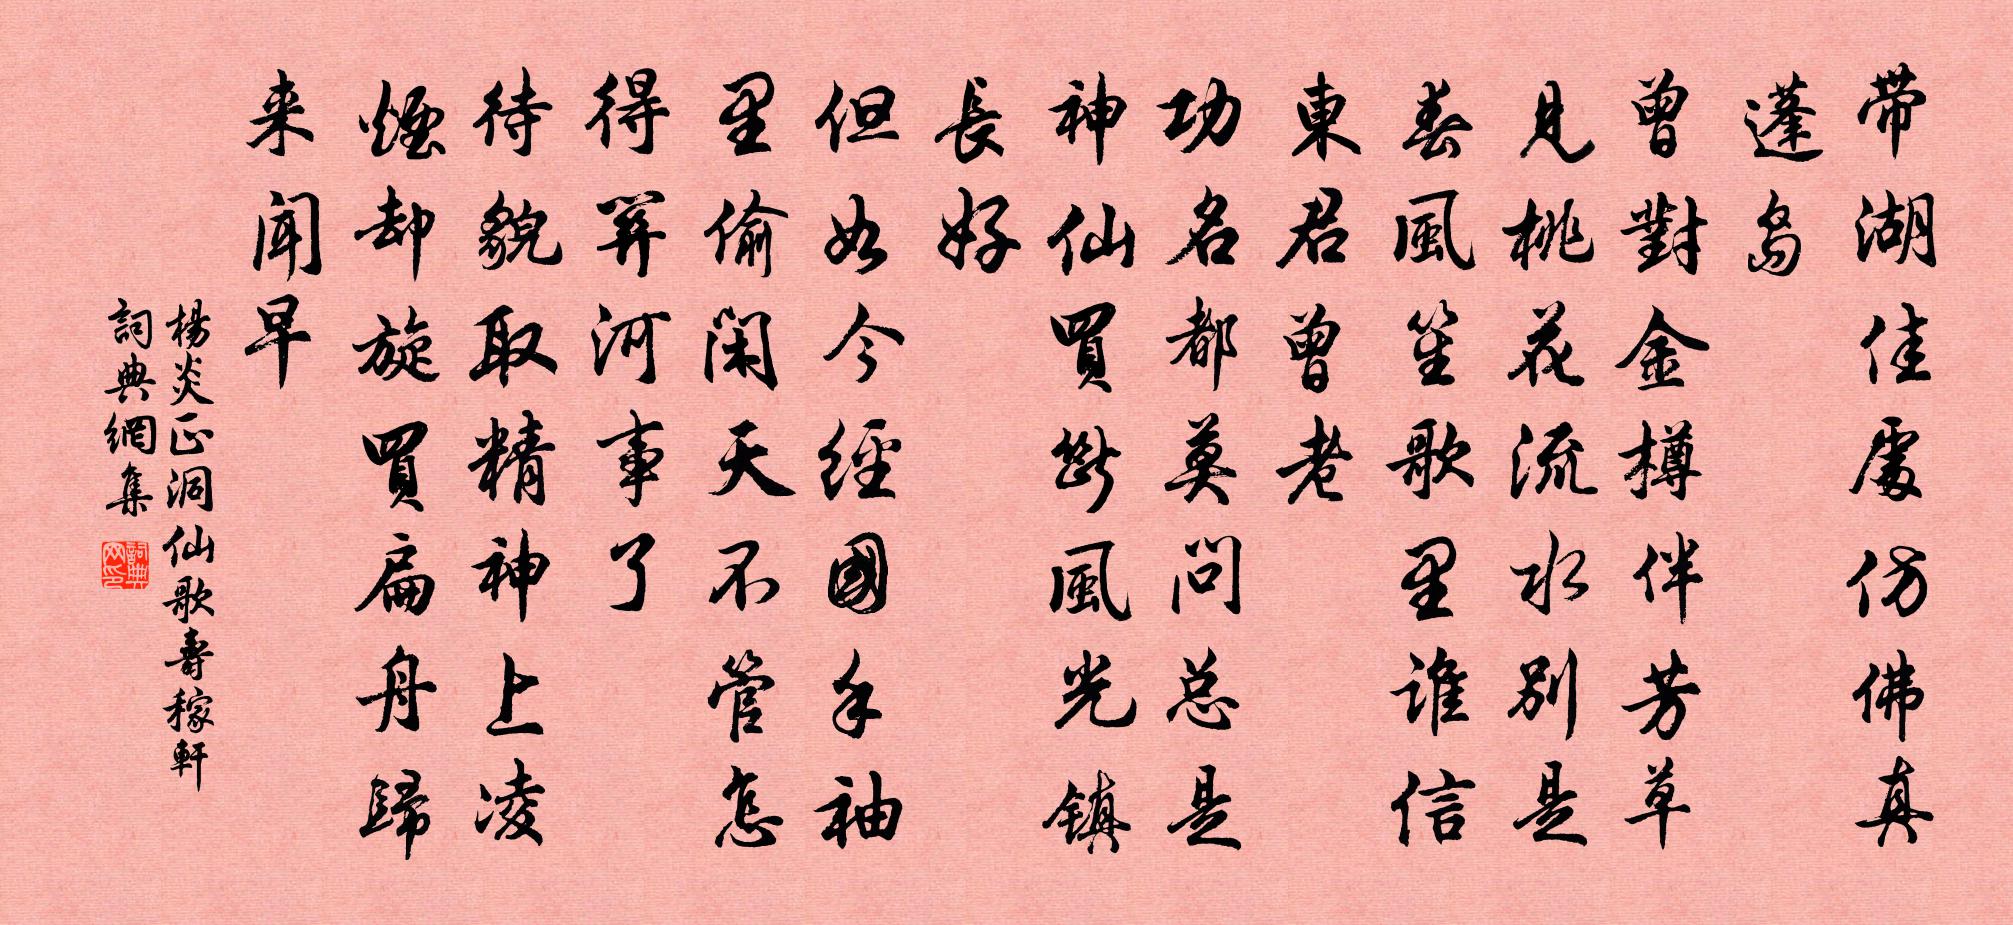 帶湖佳處仿佛真
蓬島
曾對金樽伴芳草
見桃花流水別是
春風笙歌里誰信
東君曾老
功名都莫問总是
神仙買斷風光鎮
長好
但如今經國手袖
里偷閑天不管怎
得關河事了
待貌取精神上凌
煙却旋買扁舟歸
来聞早
楊炎正洞仙歌壽稼軒
詞典網集
詞典网印